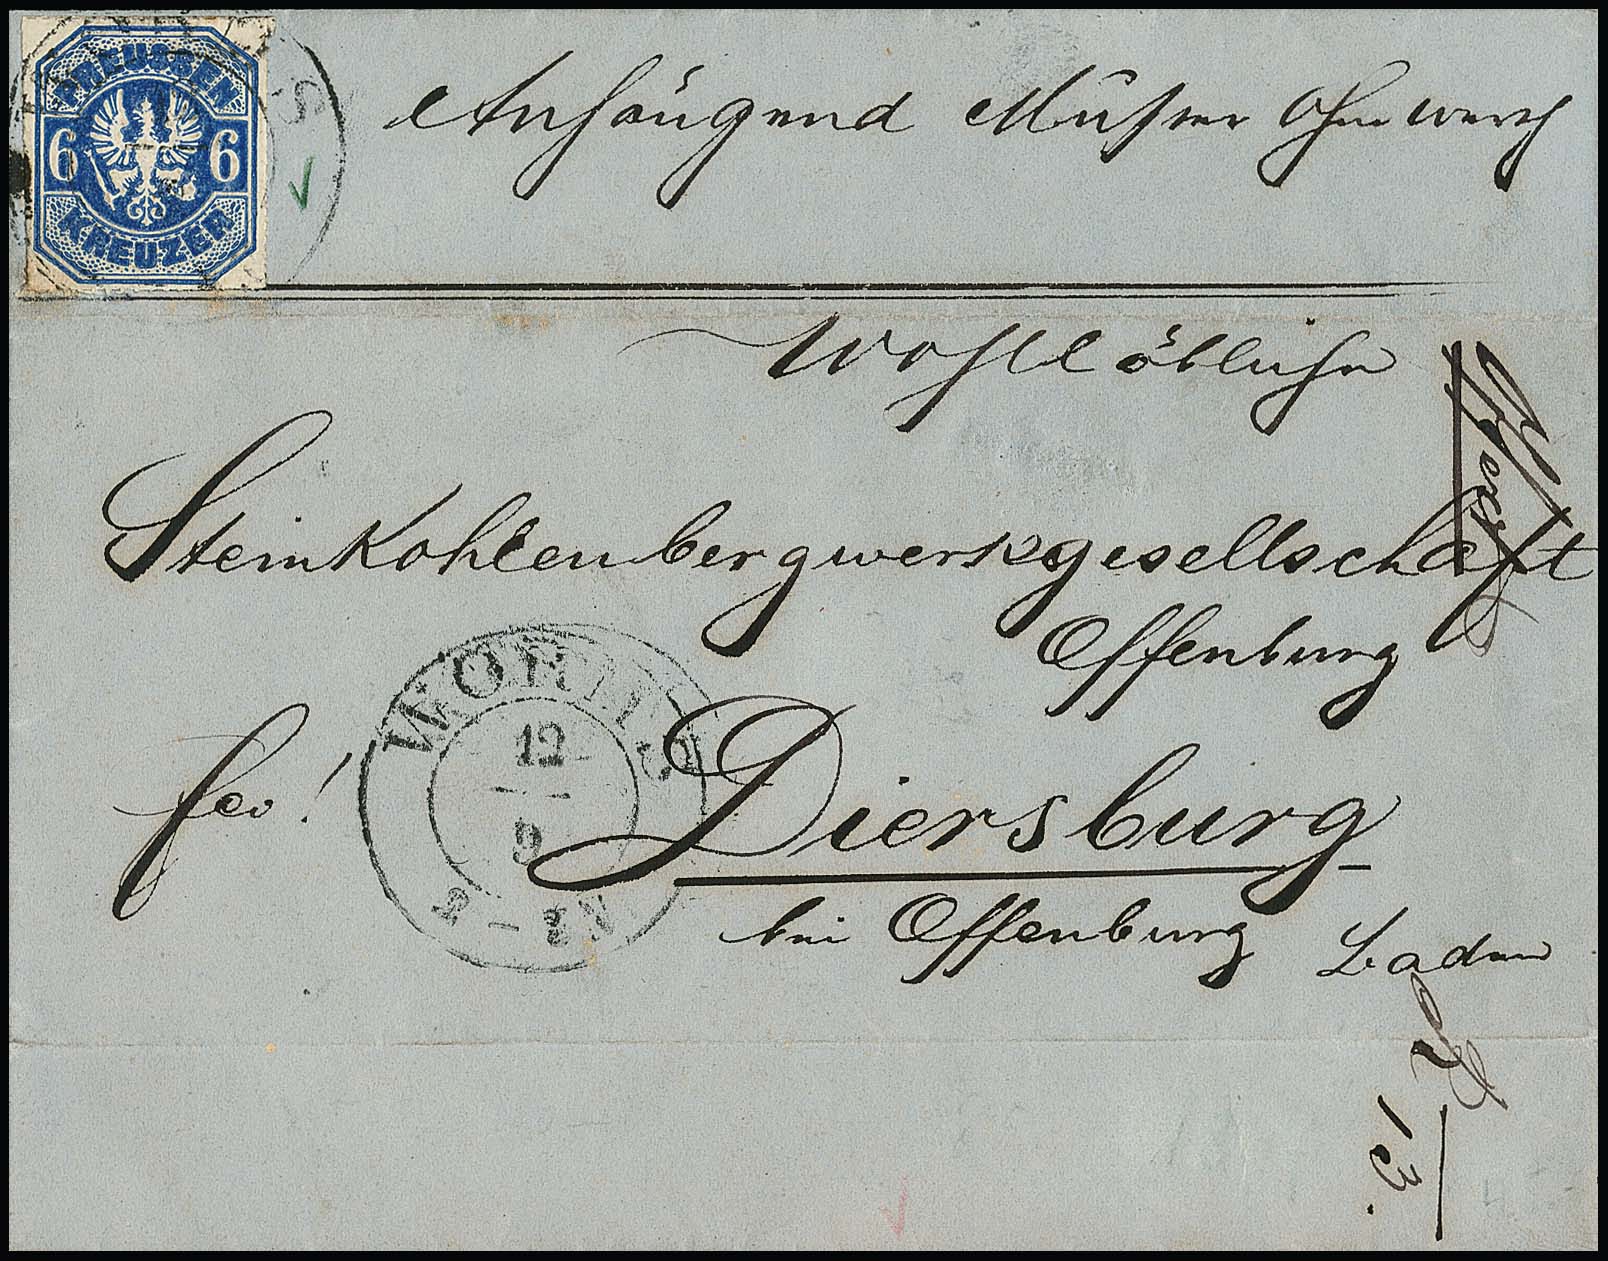 PREUSSEN
6 6
KREUZER
Anhängend Muster ohne werth
Wohllöbliche
Steinkohlenbergwerksgesellschaft
Offenburg
fco!
WORMS
12
9
2-3N
Diersburg
bei Offenburg Baden
13.